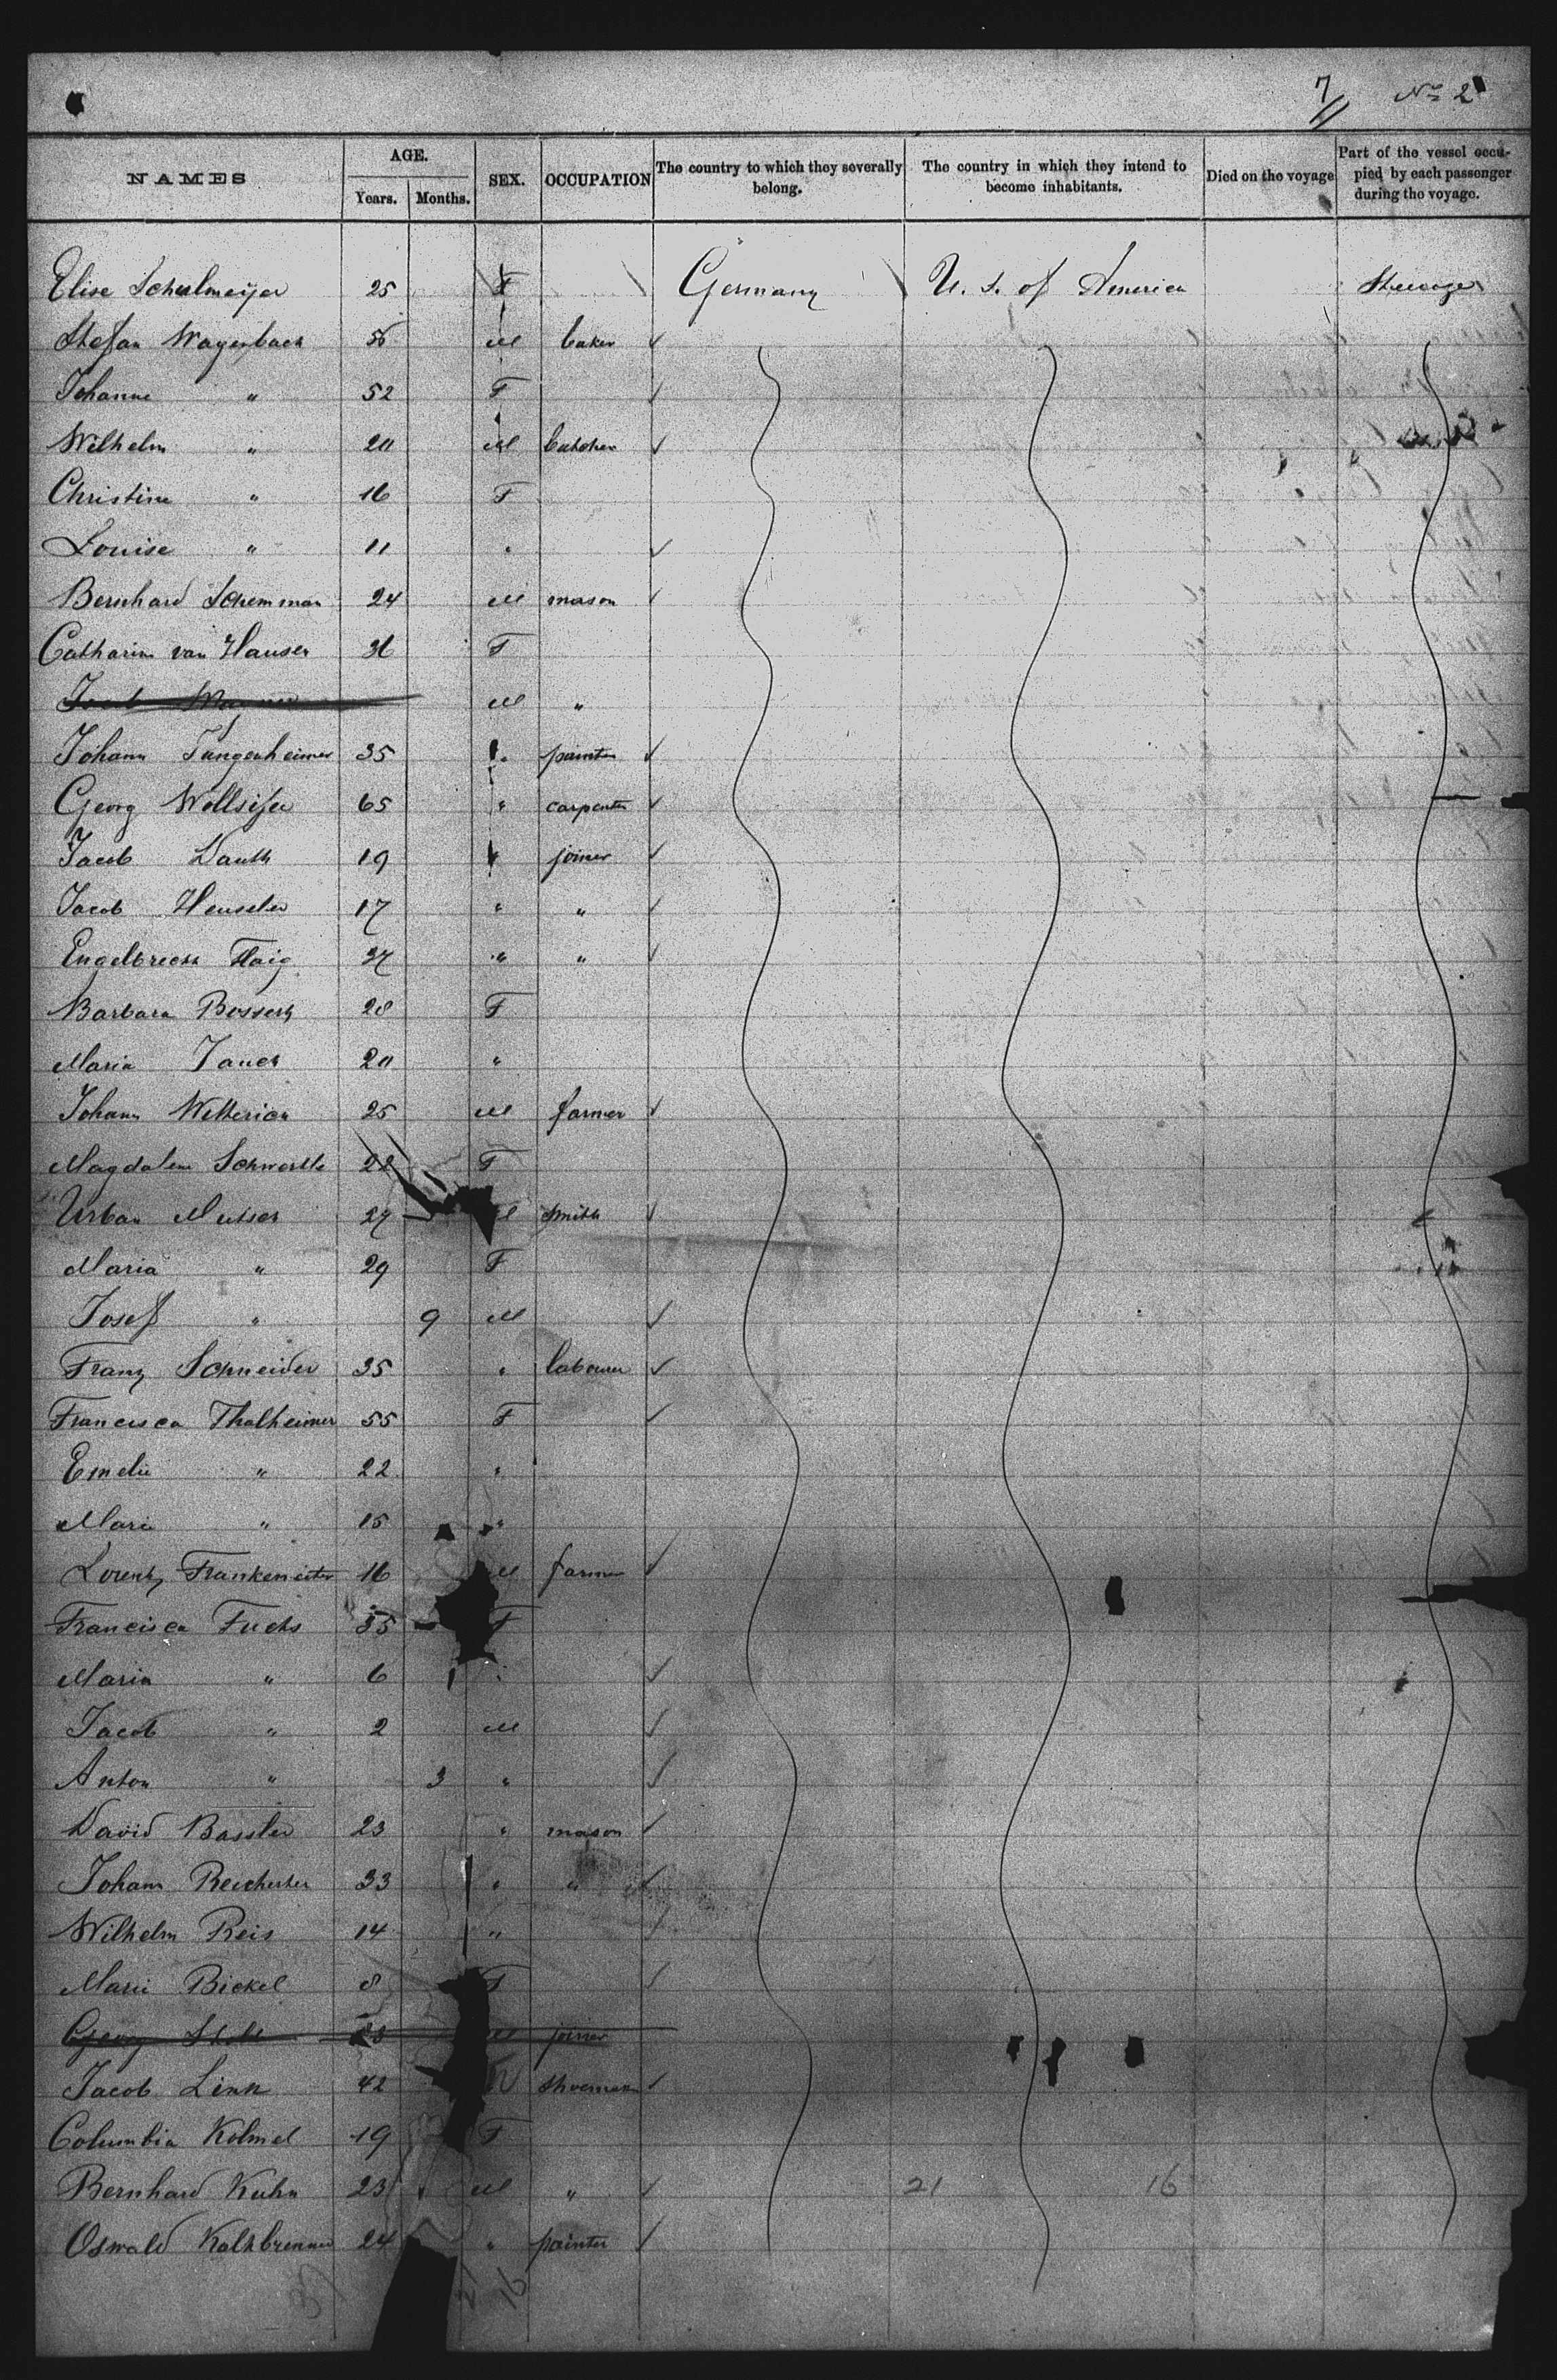 7 No 2
NAMES AGE. Years. Months. SEX. OCCUPATION The country to which they severally belong. The country in which they intend to become inhabitants. Died on the voyage Part of the vessel occupied by each passenger during the voyage.
Elise Schulmeijer 25 F Germany U. S. of America Steerage
Stefan Wagenbach M baker
Johanne " 52 F
Wilhelm " 20 M butcher
Christine " 16 F
Louise " 11 "
Bernhard Schemman 24 M mason
Catharine van Hausen 36 F
M "
Johann Tungenheimer 35 " painter
Georg 65 " carpenter
Jacob Dauth 19 " joiner
Jacob Henseler 17 " "
Engelbrecht Flaig 27 " "
Barbara Bossert 28 F
Maria Jauch 20 "
Johann 25 M farmer
Magdalene Schwertle 22 F
Urban Mutscher 27 M smith
Maria " 29 F
Josef " 9 M
Franz Schneider 35 " labourer
Francisca Thalheimer 55 F
Emelie " 22 "
Marie " 15 "
Lorentz 16 M farmer
Francisca Fuchs 35 F
Maria " 6 "
Jacob " 2 M
Anton " 3 "
David Bassler 23 " mason
Johann Reicherter 33 " "
Wilhelm Reis 14 "
Marie Bickel 8 F
Georg M joiner
Jacob Link 42 M shoemaker
Columbia Kolmel 19 F
Bernhard Kuhn 23 M " 21 16
Oswald Kalkbrenner 24 " painter
16